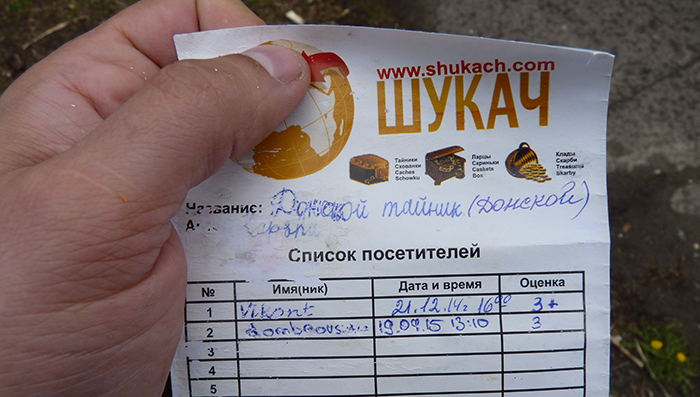 www.shukach.com
ШУКАЧ
Тайники Ларцы Клады
Схованки Скриньки Скарби
Caches Caskets Treasures
Schowku Box Skarby
Название: Донской тайник (Донской)
Список посетителей
№ Имя(ник) Дата и время Оценка
1 Vikont 21.12.14г. 16⁰⁰ 3+
2 19.04.15 13:10 3
3
4
5